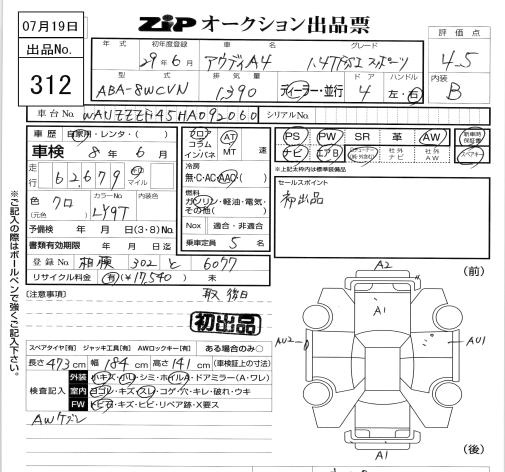 07月19日
出品No.
312
ZIPオークション出品票
評価点
4.5
内装
B
年式 初年度登録 車名 グレード
29年6月 アウディA4 1.4TFSI スポーツ
型式 排気量 ドア ハンドル
ABA-8WCVN 1,390 ディーラー・並行 4 左・右
車台No. WAUZZZF45HA092060 シリアルNo.
車歴 自家用・レンタ・( )
車検 8年6月
走行 62,679 キロ マイル
色 クロ カラーNo. LY9T 内装色
(元色)
予備検 年 月 日(3・8)No.
書類有効期限 年 月 日迄
登録No. 相模 302 と 6077
リサイクル料金 有(¥17,540) 未
フロア コラム インパネ
AT MT 速
冷房
無・C・AC・AAC( )
燃料
ガソリン・軽油・電気・その他( )
Nox 適合・非適合
乗車定員 5名
PS PW SR 革 AW
ナビ エアB 社外ナビ 社外AW
新車時保証書
スペアキー
※上記太枠内は標準装備品
セールスポイント
初出品
[注意事項] 取後日
初出品
スペアタイヤ[有] ジャッキ工具[有] AWロックキー[有] ある場合のみ○
長さ473cm 幅184cm 高さ141cm (車検証上の寸法)
検査記入
外装 小キズ・小凹・シミ・ホイルA・ドアミラー(A・ワレ)
室内 ヨゴレ・キズ・スレ・コゲ・穴・キレ・破れ・ウキ
FW トビ石・キズ・ヒビ・リペア跡・X要ス
AWケズレ
※ご記入の際はボールペンで強くご記入下さい。
(前)
A2
A1
AU2
AU1
A1
(後)